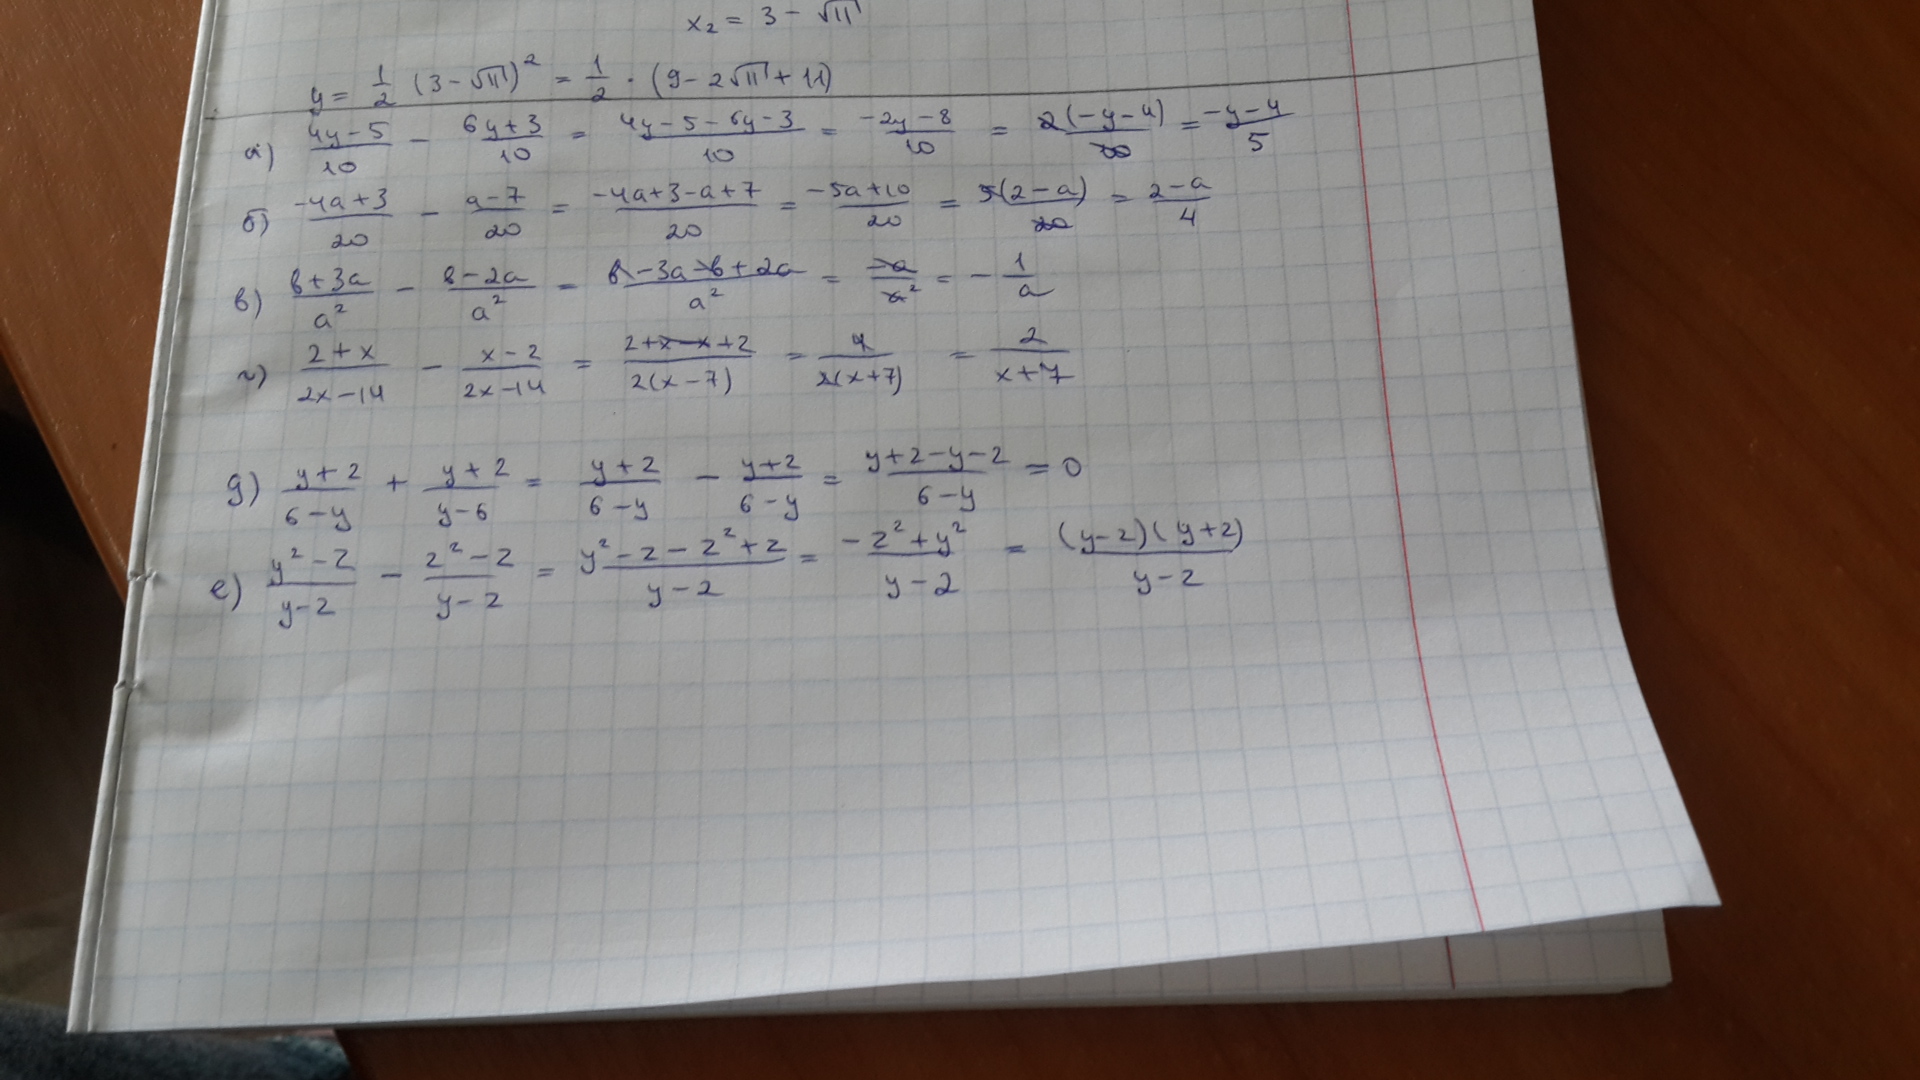 x₂ = 3 − √11
y = 1/2 (3 − √11)² = 1/2 · (9 − 2√11 + 11)
а) (4y − 5)/10 − (6y + 3)/10 = (4y − 5 − 6y − 3)/10 = (−2y − 8)/10 = 2(−y − 4)/10 = (−y − 4)/5
б) (−4a + 3)/20 − (a − 7)/20 = (−4a + 3 − a + 7)/20 = (−5a + 10)/20 = 5(2 − a)/20 = (2 − a)/4
в) (b + 3a)/a² − (b − 2a)/a² = (b − 3a − b + 2a)/a² = −a/a² = −1/a
г) (2 + x)/(2x − 14) − (x − 2)/(2x − 14) = (2 + x − x + 2)/(2(x − 7)) = 4/(2(x + 7)) = 2/(x + 7)
д) (y + 2)/(6 − y) + (y + 2)/(y − 6) = (y + 2)/(6 − y) − (y + 2)/(6 − y) = (y + 2 − y − 2)/(6 − y) = 0
е) (y² − 2)/(y − 2) − (2² − 2)/(y − 2) = (y² − 2 − 2² + 2)/(y − 2) = (−2² + y²)/(y − 2) = (y − 2)(y + 2)/(y − 2)